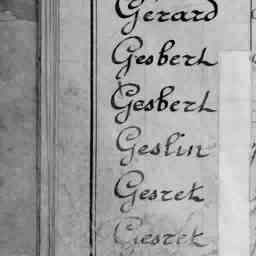 Gerard
Gesbert
Gesbert
Geslin
Gesret
Gesret